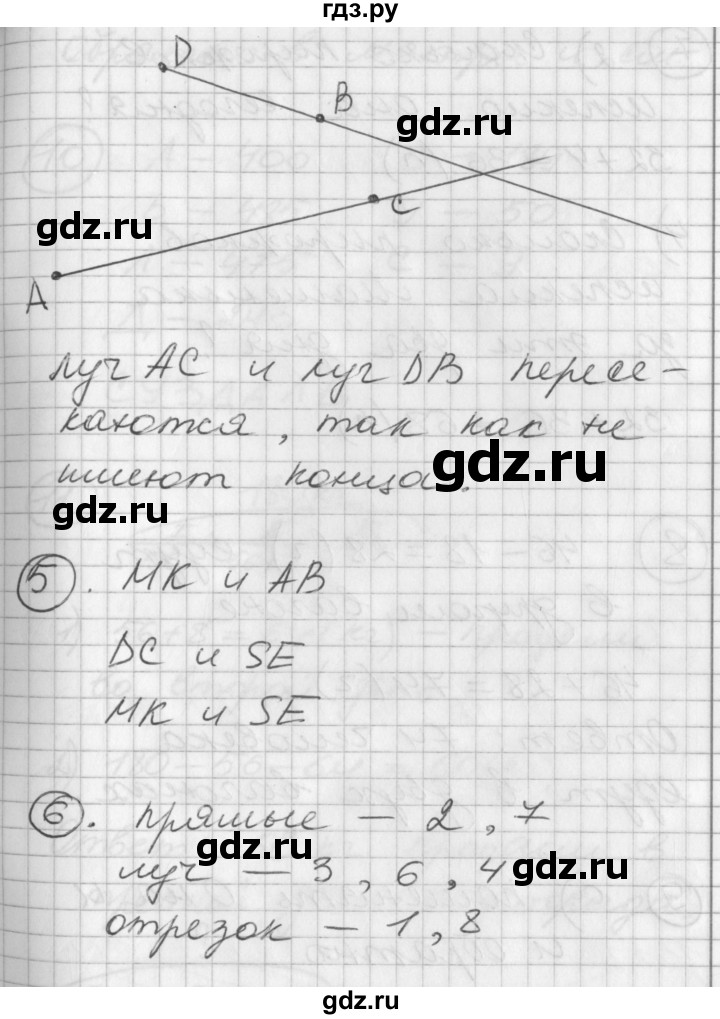 гдз.ру
D
B
gdz.ru
C
gdz.ru
A
луч AC и луч DB пересе-
каются, так как не
имеют конца.
gdz.ru
gdz.ru
5. МК и АВ
DC и SE
МК и SE
6. прямые – 2, 7
gdz.ru
луч – 3, 6, 4
gdz.ru
отрезок – 1, 8
gdz.ru